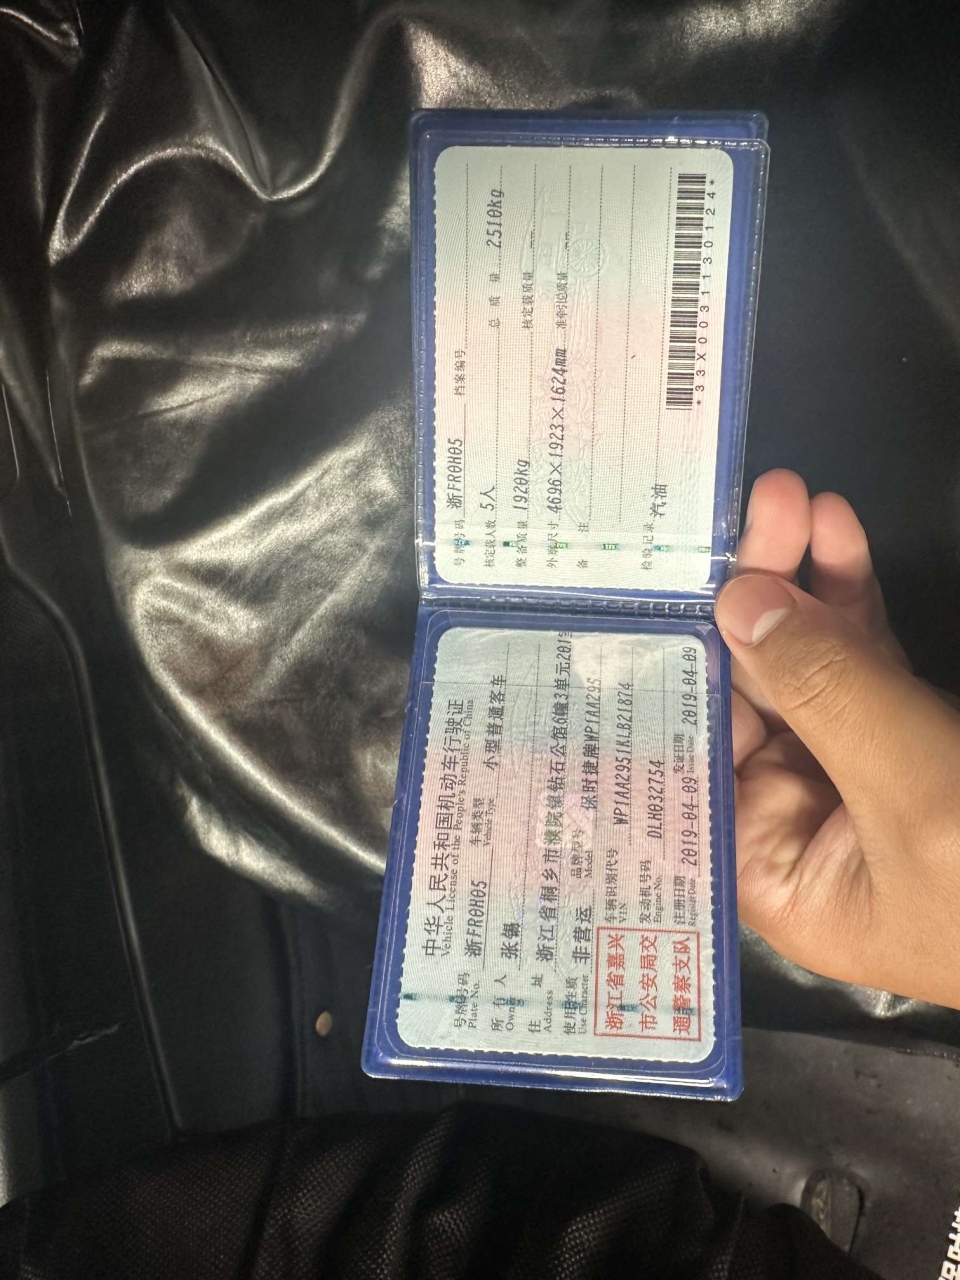 中华人民共和国机动车行驶证
Vehicle License of the People's Republic of China
号牌号码 浙FR0H05 车辆类型 小型普通客车
Plate No. Vehicle Type
所有人 张锡
Owner
住址 浙江省桐乡市濮院镇钻石公馆6幢3单元201
Address
使用性质 非营运 品牌型号 保时捷牌WP1AA295
Use Character Model
浙江省嘉兴
市公安局交
通警察支队
车辆识别代号 WP1AA2951KLB21874
VIN
发动机号码 DLH032754
Engine No.
注册日期 2019-04-09 发证日期 2019-04-09
Register Date Issue Date
号牌号码 浙FR0H05 档案编号
核定载人数 5人 总质量 2510kg
整备质量 1920kg 核定载质量 --
外廓尺寸 4696×1923×1624mm 准牵引总质量 --
备注
检验记录 汽油
*33X0031130124*